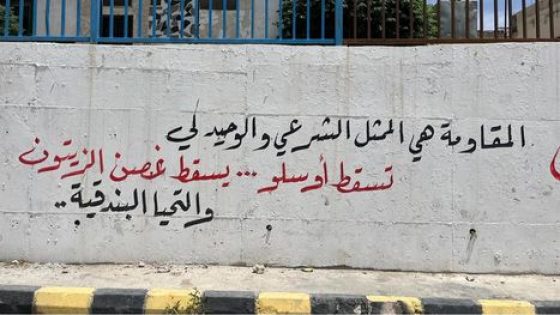 المقاومة هي الممثل الشرعي والوحيد لي
تسقط أوسلو ... يسقط غصن الزيتون
والتحيا البندقية ..